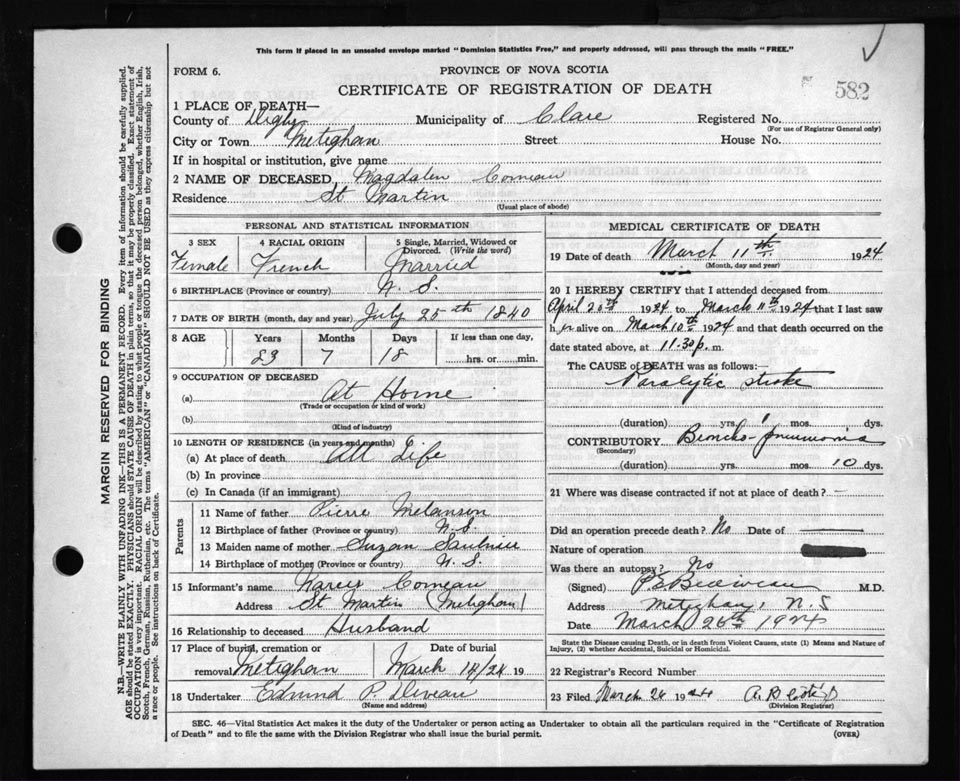 This form if placed in an unsealed envelope marked "Dominion Statistics Free," and properly addressed, will pass through the mails "FREE."
FORM 6.
PROVINCE OF NOVA SCOTIA
CERTIFICATE OF REGISTRATION OF DEATH
582
1 PLACE OF DEATH—
County of Digby Municipality of Clare Registered No.
(For use of Registrar General only)
City or Town Meteghan Street House No.
If in hospital or institution, give name
2 NAME OF DECEASED Magdalen Comeau
Residence St Martin
(Usual place of abode)
PERSONAL AND STATISTICAL INFORMATION
3 SEX 4 RACIAL ORIGIN 5 Single, Married, Widowed or Divorced. (Write the word)
Female French Married
6 BIRTHPLACE (Province or country) N. S.
7 DATE OF BIRTH (month, day and year) July 25th 1840
8 AGE Years Months Days If less than one day,
83 7 18 hrs. or min.
9 OCCUPATION OF DECEASED
(a) At Home
(Trade or occupation or kind of work)
(b)
(Kind of industry)
10 LENGTH OF RESIDENCE (in years and months)
(a) At place of death All Life
(b) In province
(c) In Canada (if an immigrant)
Parents
11 Name of father Pierre Melanson
12 Birthplace of father (Province or country) N. S.
13 Maiden name of mother Suzan Saulnier
14 Birthplace of mother (Province or country) N. S.
15 Informant's name Comeau
Address St Martin (Meteghan)
16 Relationship to deceased Husband
17 Place of burial, cremation or removal Date of burial
Meteghan March 14/24 19
18 Undertaker P. Deveau
(Name and address)
MEDICAL CERTIFICATE OF DEATH
19 Date of death March 11th 1924
(Month, day and year)
20 I HEREBY CERTIFY that I attended deceased from
April 20th 1924 to March 11th 1924 that I last saw
her alive on March 10th 1924 and that death occurred on the
date stated above, at 11.30 p. m.
The CAUSE of DEATH was as follows:—
Paralytic stroke
(duration) yrs 1 mos. dys.
CONTRIBUTORY Broncho-pneumonia
(Secondary)
(duration) yrs. mos. 10 dys.
21 Where was disease contracted if not at place of death? —
Did an operation precede death? No Date of —
Nature of operation
Was there an autopsy? No
(Signed) M.D.
Address Meteghan, N. S
Date March 26th 1924
State the Disease causing Death, or in death from Violent Causes, state (1) Means and Nature of
Injury, (2) whether Accidental, Suicidal or Homicidal.
22 Registrar's Record Number
23 Filed March 26 1924
(Division Registrar)
SEC. 46—Vital Statistics Act makes it the duty of the Undertaker or person acting as Undertaker to obtain all the particulars required in the "Certificate of Registration
of Death" and to file the same with the Division Registrar who shall issue the burial permit.
(OVER)
MARGIN RESERVED FOR BINDING
N.B.—WRITE PLAINLY WITH UNFADING INK—THIS IS A PERMANENT RECORD. Every item of information should be carefully supplied.
AGE should be stated EXACTLY. PHYSICIANS should STATE CAUSE OF DEATH in plain terms, so that it may be properly classified. Exact statement of
OCCUPATION is very important. RACIAL ORIGIN will be described by stating to what people or tongue the deceased person belonged, whether English, Irish,
Scotch, French, German, Russian, Ruthenian, etc. The terms "AMERICAN" or "CANADIAN" SHOULD NOT BE USED as they express citizenship but not
a race or people. See instructions on back of Certificate.